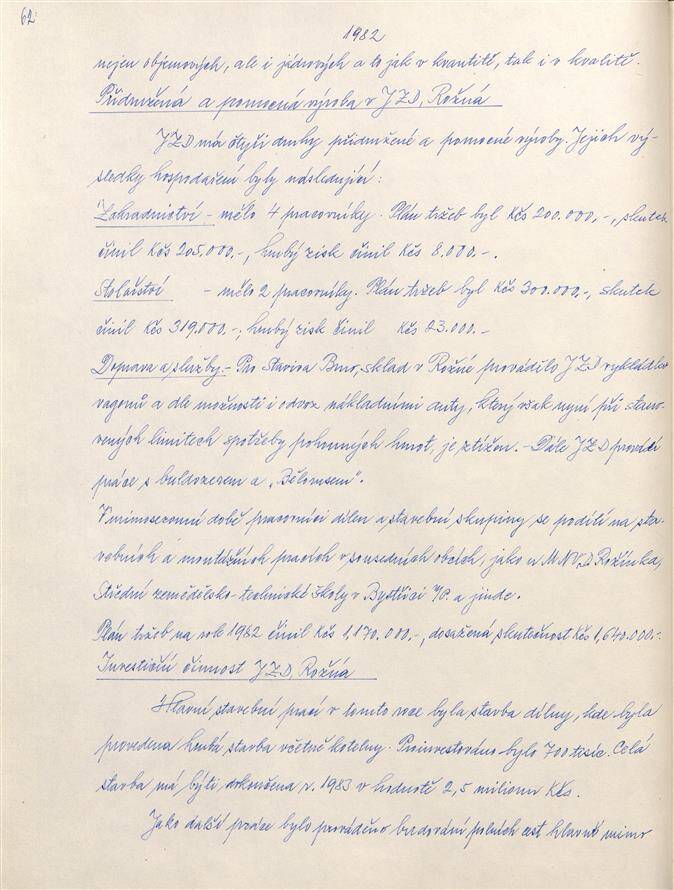 62
1982
nejen objemových, ale i jádrových a to jak v kvantitě, tak i v kvalitě.
Přidružená a pomocná výroba v JZD, Rožná
JZD má čtyři druhy přidružené a pomocné výroby. Jejich vý-
sledky hospodaření byly následující:
Zahradnictví - mělo 4 pracovníky. Plán tržeb byl Kčs 200.000,-, skutek
činil Kčs 205.000.-, hrubý zisk činil Kčs 8.000.-.
Stolářství - mělo 2 pracovníky. Plán tržeb byl Kčs 300.000.-, skutek
činil Kčs 319.000.-, hrubý zisk činil Kčs 23.000.-
Doprava a služby - Pro Staviva Brno, sklad v Rožné provádělo JZD vykládku
vagonů a dle možnosti i odvoz nákladními auty, který však nyní při stano-
vených limitech spotřeby pohonných hmot, je ztížen. - Dále JZD provádí
práce s buldozerem a „Bělorusem".
V mimosezonní době pracovníci dílen a stavební skupiny se podílí na sta-
vebních a montážních pracích v sousedních obcích, jako u MNV, D. Rožínka,
Střední zemědělsko-technické školy v Bystřici n/P. a jinde.
Plán tržeb na rok 1982 činil Kčs 1,170.000.-, dosažená skutečnost Kčs 1,640.000.-
Investiční činnost JZD, Rožná
Hlavní stavební prací v tomto roce byla stavba dílny, kde byla
provedena hrubá stavba včetně kotelny. Proinvestováno bylo 700 tisíc. Celá
stavba má býti dokončena r. 1983 v hodnotě 2,5 milionu Kčs.
Jako další práce bylo prováděno budování polních cest hlavně mimo